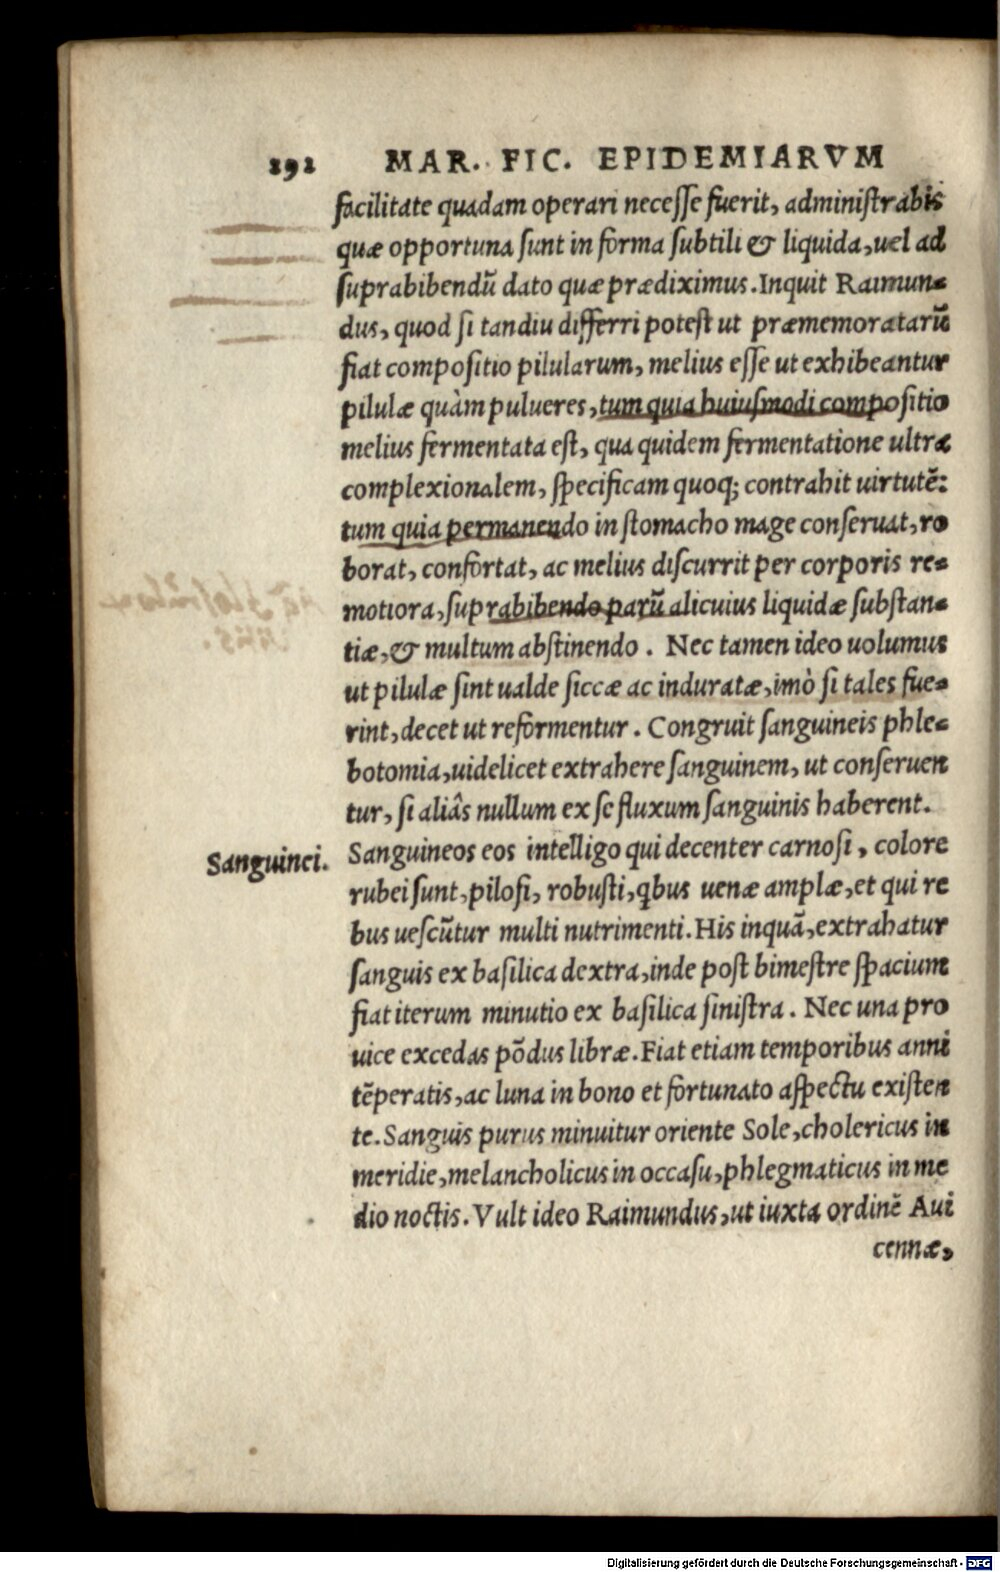 292 MAR. FIC. EPIDEMIARVM
facilitate quadam operari necesse fuerit, administrabis
quæ opportuna sunt in forma subtili & liquida, uel ad
suprabibendũ dato quæ prædiximus. Inquit Raimun-
dus, quod si tandiu differri potest ut præmemoratarũ
fiat compositio pilularum, melius esse ut exhibeantur
pilulæ quàm pulueres, tum quia huiusmodi compositio
melius fermentata est, qua quidem fermentatione ultra
complexionalem, specificam quoq; contrahit uirtutẽ:
tum quia permanendo in stomacho mage conseruat, ro
borat, confortat, ac melius discurrit per corporis re-
motiora, suprabibendo parũ alicuius liquidæ substan-
tiæ, & multum abstinendo. Nec tamen ideo uolumus
ut pilulæ sint ualde siccæ ac induratæ, imò si tales fue-
rint, decet ut reformentur. Congruit sanguineis phle-
botomia, uidelicet extrahere sanguinem, ut conseruen
tur, si aliâs nullum ex se fluxum sanguinis haberent.
Sanguinei. Sanguineos eos intelligo qui decenter carnosi, colore
rubei sunt, pilosi, robusti, qbus uenæ amplæ, et qui re
bus uescũtur multi nutrimenti. His inquã, extrahatur
sanguis ex basilica dextra, inde post bimestre spacium
fiat iterum minutio ex basilica sinistra. Nec una pro
uice excedas põdus libræ. Fiat etiam temporibus anni
tẽperatis, ac luna in bono et fortunato aspectu existen
te. Sanguis purus minuitur oriente Sole, cholericus in
meridie, melancholicus in occasu, phlegmaticus in me
dio noctis. Vult ideo Raimundus, ut iuxta ordinẽ Aui
cennæ,
Digitalisierung gefördert durch die Deutsche Forschungsgemeinschaft - DFG